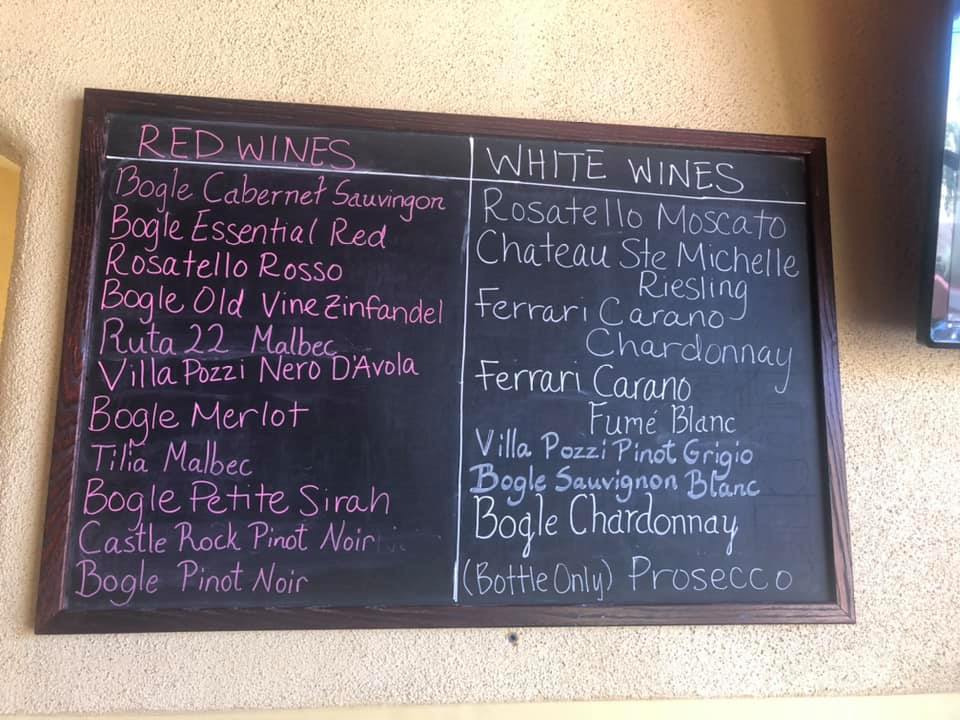 RED WINES
Bogle Cabernet Sauvingon
Bogle Essential Red
Rosatello Rosso
Bogle Old Vine Zinfandel
Ruta 22 Malbec
Villa Pozzi Nero D'Avola
Bogle Merlot
Tilia Malbec
Bogle Petite Sirah
Castle Rock Pinot Noir
Bogle Pinot Noir
WHITE WINES
Rosatello Moscato
Chateau Ste Michelle
Riesling
Ferrari Carano
Chardonnay
Ferrari Carano
Fumé Blanc
Villa Pozzi Pinot Grigio
Bogle Sauvignon Blanc
Bogle Chardonnay
(Bottle Only) Prosecco